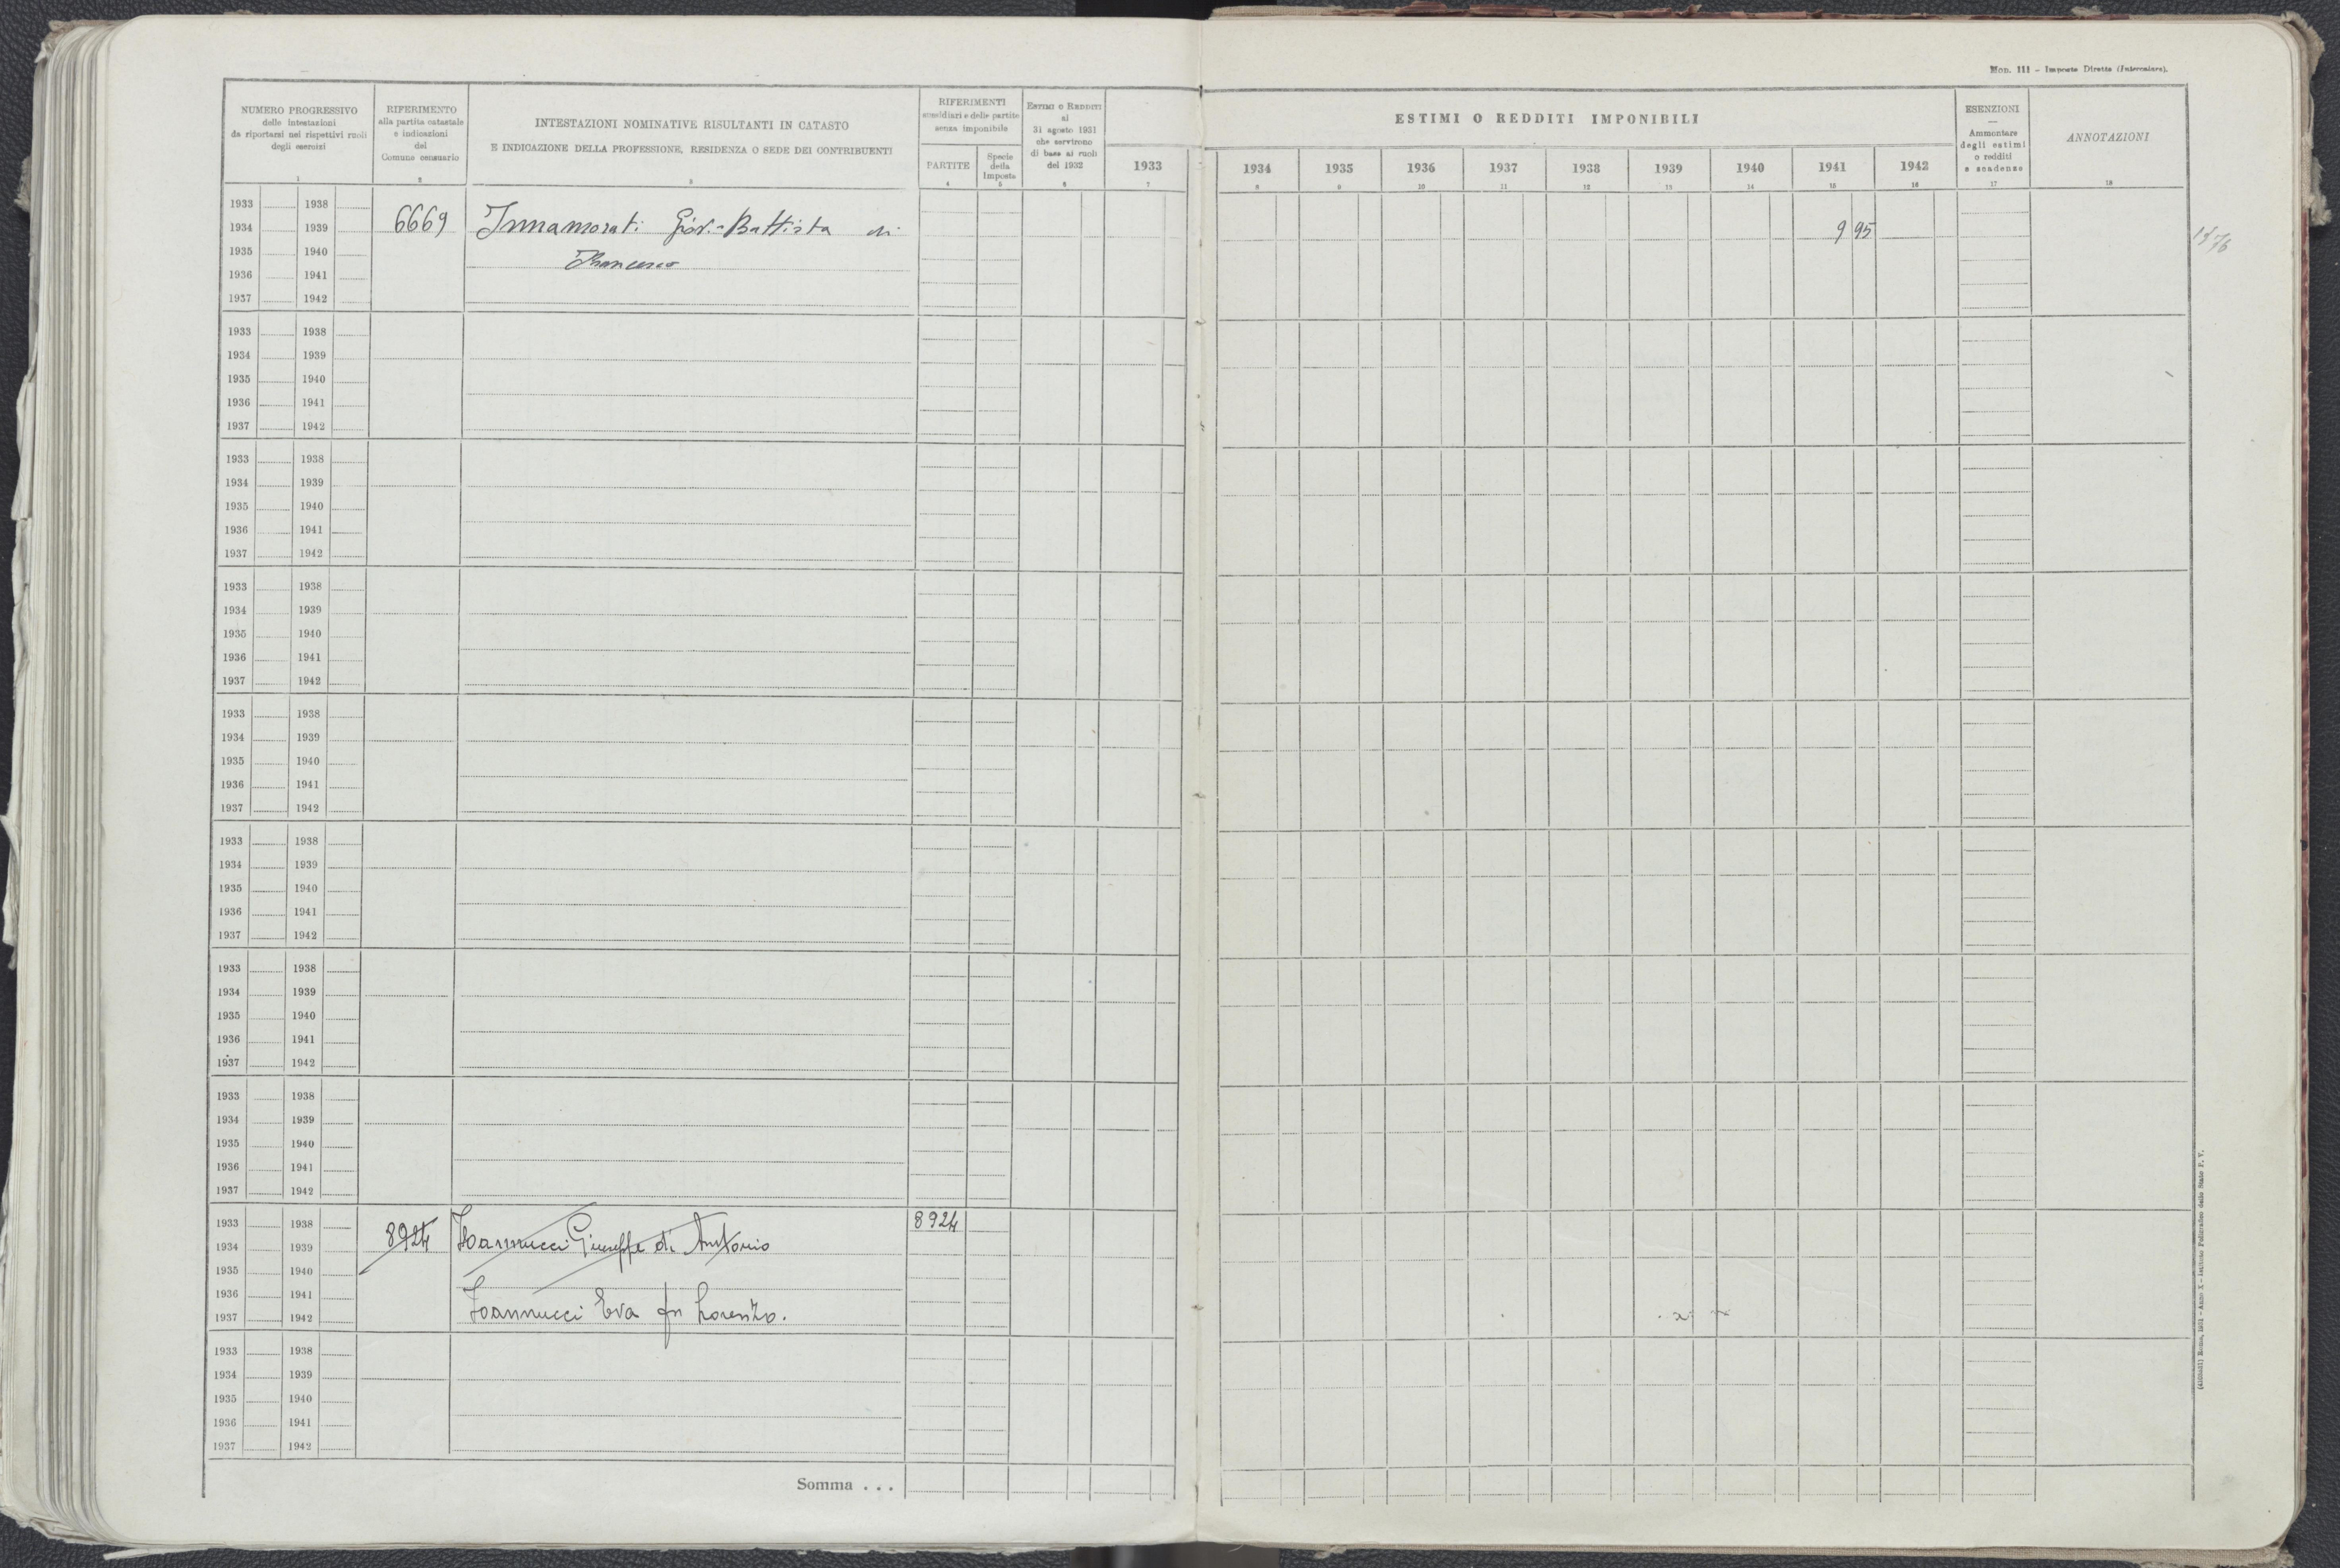 MOD. 111 – Imposte Dirette (Intercalare).
NUMERO PROGRESSIVO
delle intestazioni
da riportarsi nei rispettivi ruoli
degli esercizi
RIFERIMENTO
alla partita catastale
e indicazioni
del
Comune censuario
INTESTAZIONI NOMINATIVE RISULTANTI IN CATASTO
E INDICAZIONE DELLA PROFESSIONE, RESIDENZA O SEDE DEI CONTRIBUENTI
RIFERIMENTI
sussidiari e delle partite
senza imponibile
PARTITE
Specie
della
Imposta
ESTIMI O REDDITI
al
31 agosto 1931
che servirono
di base ai ruoli
del 1932
ESTIMI O REDDITI IMPONIBILI
1933 1934 1935 1936 1937 1938 1939 1940 1941 1942
ESENZIONI
—
Ammontare
degli estimi
o redditi
e scadenze
ANNOTAZIONI
1 2 3 4 5 6 7 8 9 10 11 12 13 14 15 16 17 18
1933 1938
1934 1939 6669 Innamorati Giov.-Battista di 9 95
1935 1940 Francesco
1936 1941
1937 1942
1933 1938
1934 1939
1935 1940
1936 1941
1937 1942
1933 1938
1934 1939
1935 1940
1936 1941
1937 1942
1933 1938
1934 1939
1935 1940
1936 1941
1937 1942
1933 1938
1934 1939
1935 1940
1936 1941
1937 1942
1933 1938
1934 1939
1935 1940
1936 1941
1937 1942
1933 1938
1934 1939
1935 1940
1936 1941
1937 1942
1933 1938
1934 1939
1935 1940
1936 1941
1937 1942
1933 1938 8924
1934 1939 8924 Ioannucci Giuseppe di Antonio
1935 1940
1936 1941
1937 1942 Ioannucci Eva fu Lorenzo.
1933 1938
1934 1939
1935 1940
1936 1941
1937 1942
Somma . . .
Roma, 1931 - Anno X - Istituto Poligrafico dello Stato P. V.